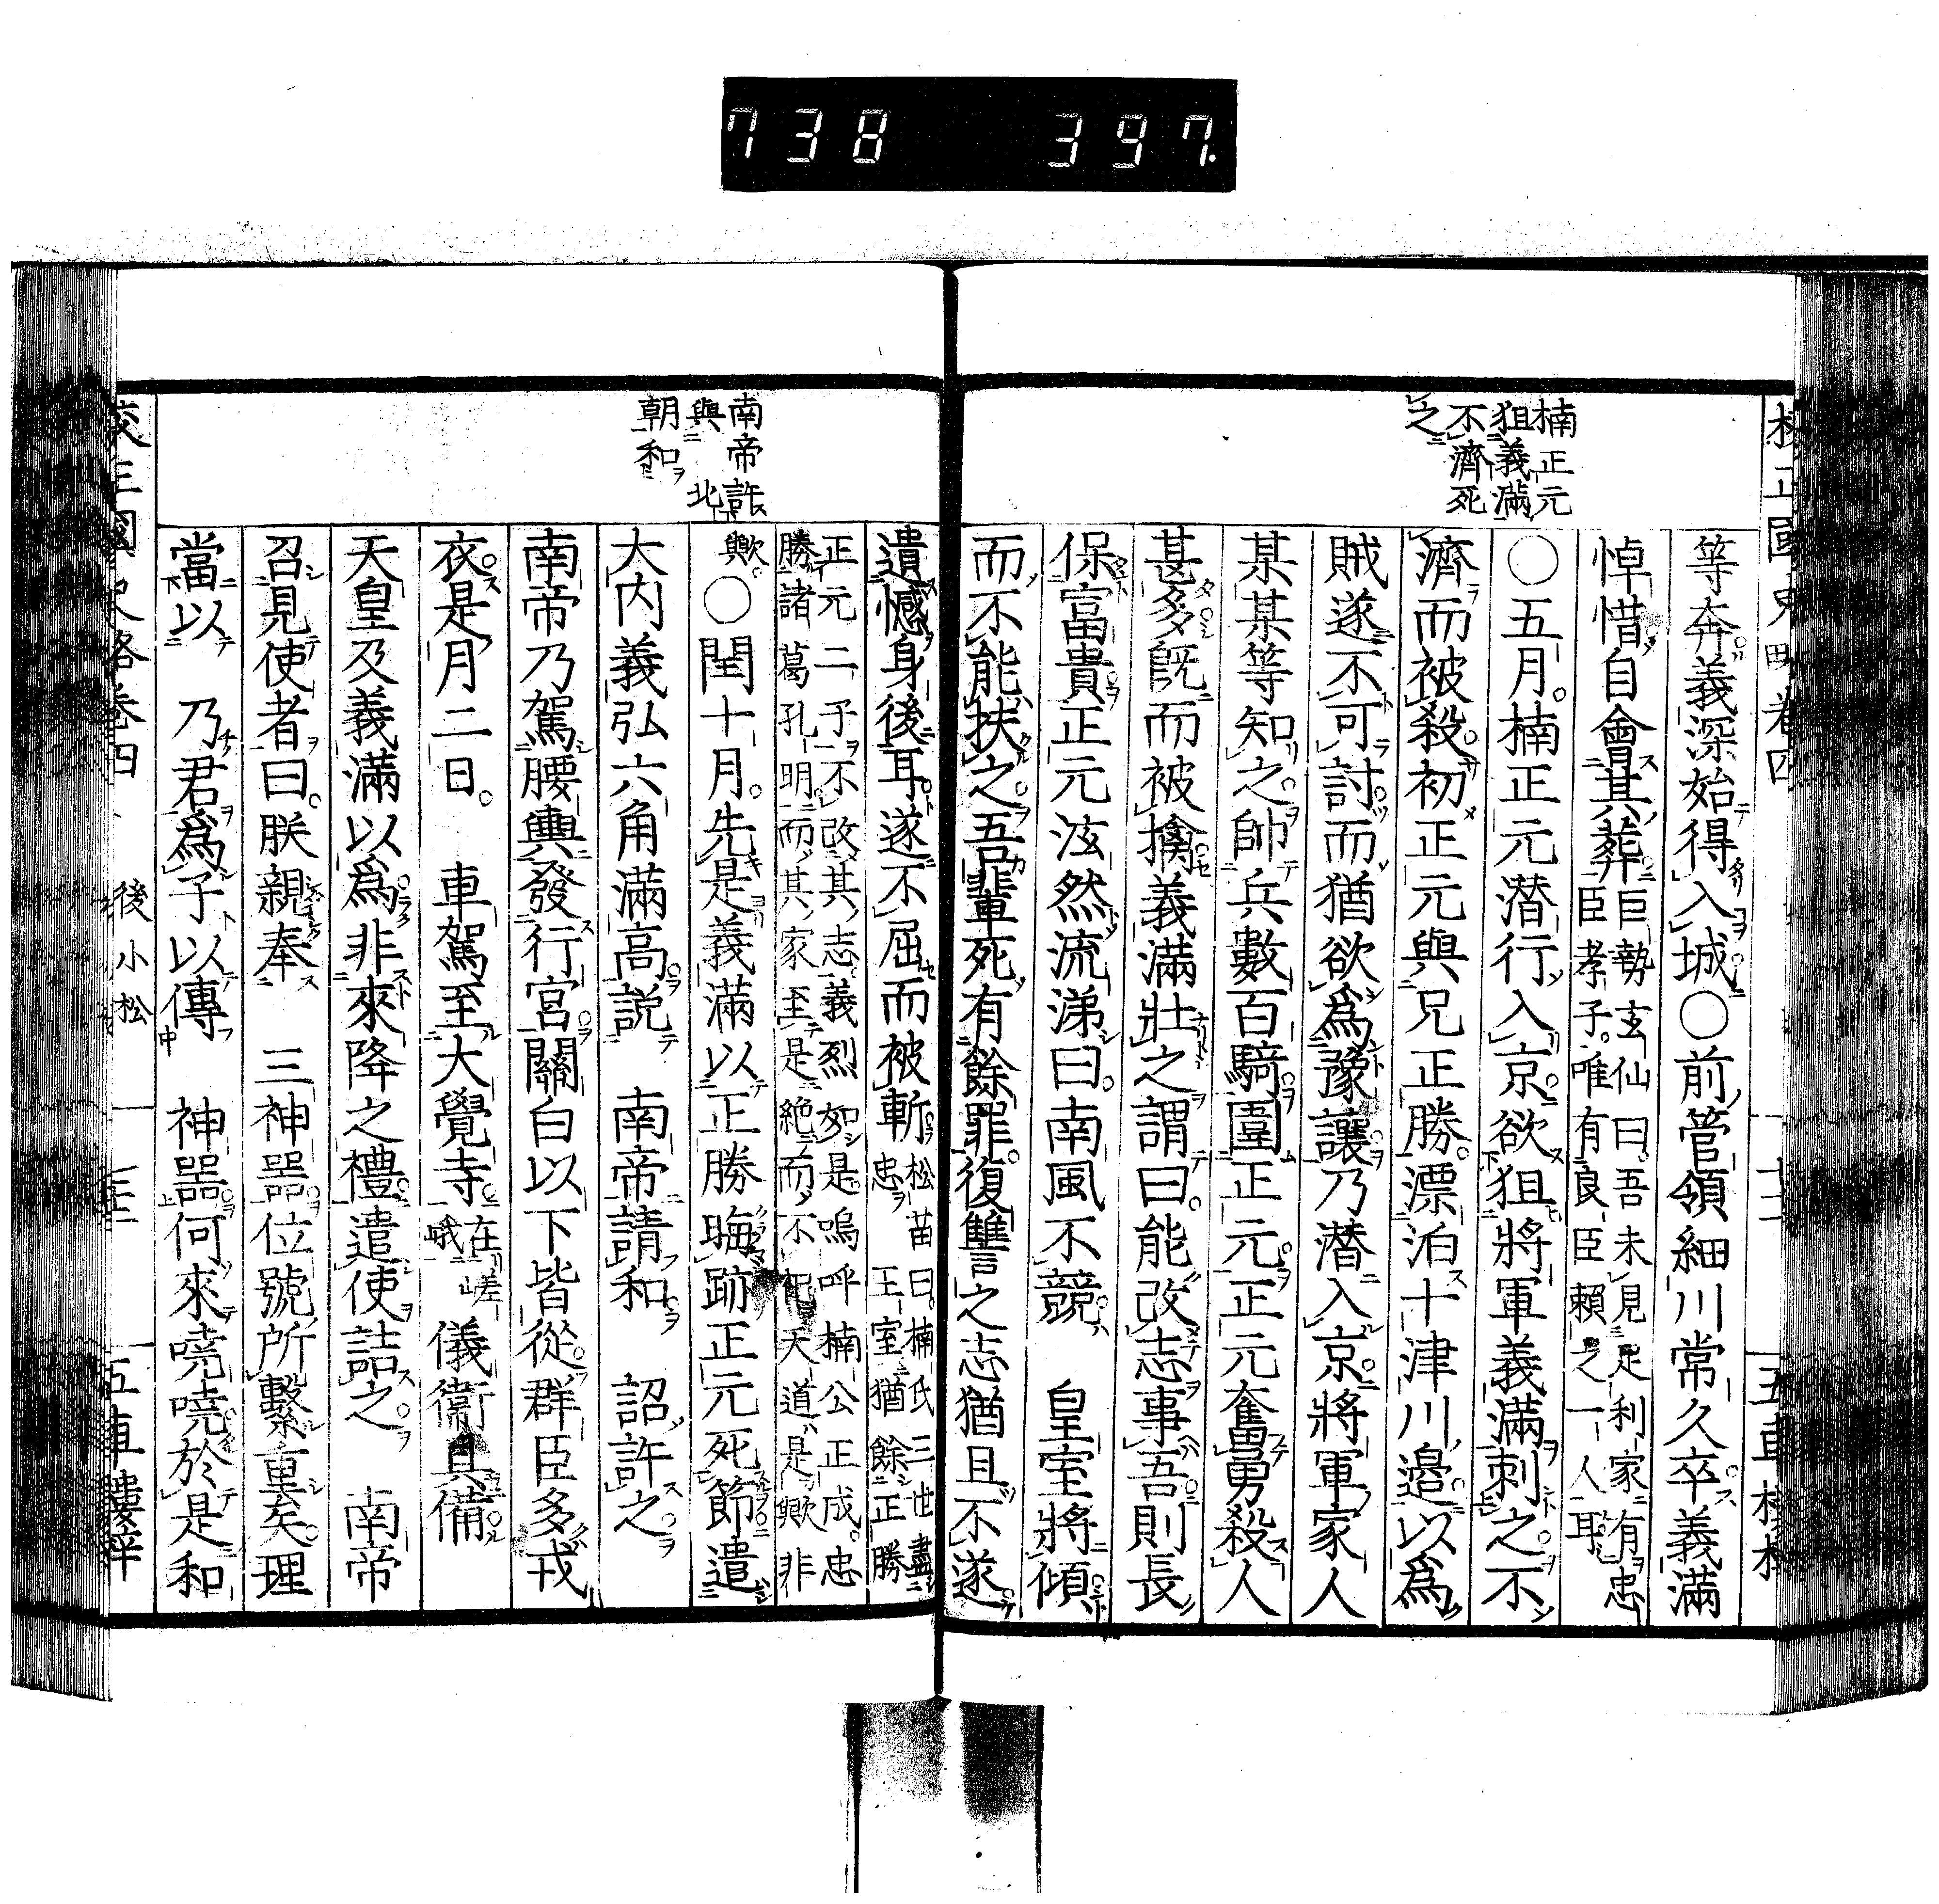 738 397.
校正國史略卷四
五車樓梓
楠正元
狙義滿
不濟死
之
等奔義深始得入城○前管領細川常久卒義滿
悼惜自會其葬巨勢玄仙曰吾未見足利家有忠
臣孝子唯有良臣賴之一人耳
○五月楠正元潜行入京欲狙將軍義滿刺之不
濟而被殺初正元與兄正勝漂泊十津川邉以爲
賊遂不可討而猶欲爲豫讓乃潜入京將軍家人
某某等知之帥兵數百騎圍正元正元奮勇殺人
甚多既而被擒義滿壯之謂曰能改志事吾則長
保富貴正元泫然流涕曰南風不競 皇室將傾
而不能扶之吾輩死有餘罪復讐之志猶且不遂
南帝許
與北
朝和
遺憾身後耳遂不屈而被斬松苗曰楠氏三世盡
忠王室猶餘正勝
正元二子不改其志義烈如是嗚呼楠公正成忠
勝諸葛孔明而其家至是絶而不祀天道是歟非
歟○閏十月先是義滿以正勝晦跡正元死節遣
大内義弘六角滿高説 南帝請和 詔許之
南帝乃駕腰輿發行宮關白以下皆從群臣多戎
衣是月二日 車駕至大覺寺在嵯
峨儀衞具備
天皇及義滿以爲非來降之禮遣使詰之 南帝
召見使者曰朕親奉 三神噐位號所繫重矣理
當以 乃君爲子以傳 神噐何來嘵嘵於是和
校正國史略卷四 後小松 五車樓梓